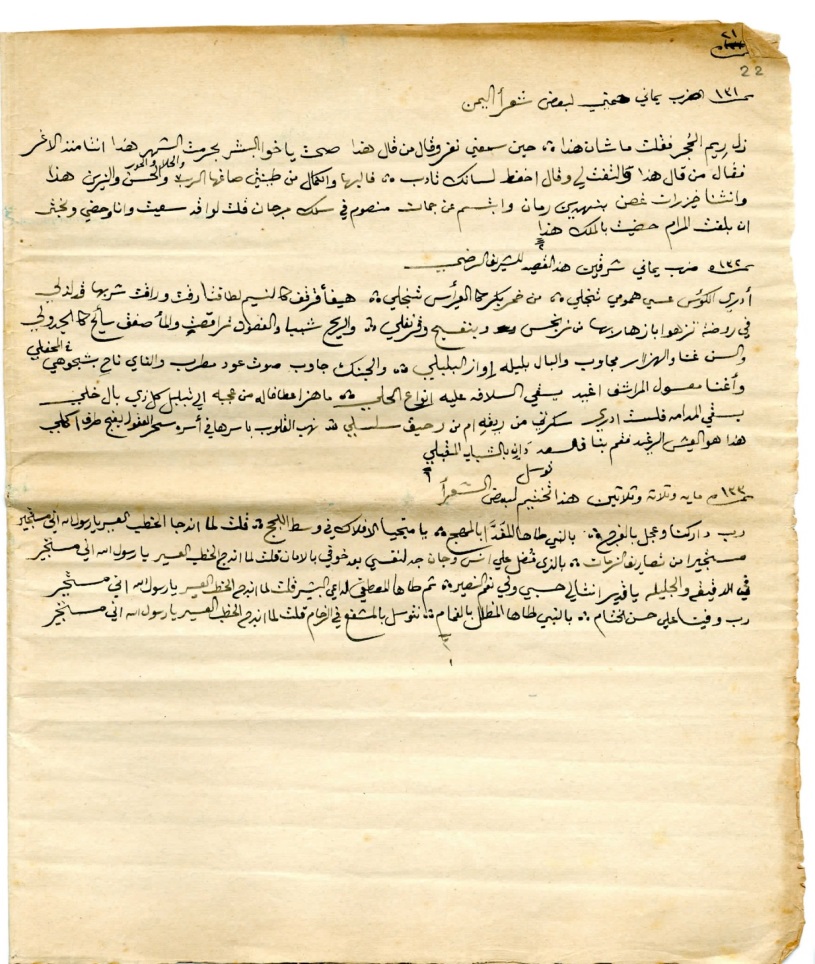 ٢١
22
١٣١ ضرب يماني حميني لبعض شعرأ اليمن
زل ريم الحجر فقلت ما شان هذا ؞ حين سمعني نفر وقال من قال هذا صحت ياخوا البشر بحرمت الشهر هذا انتا منذ الاغر
فقال من قال هذا والتفت لي وقال احفظ لسانك تادب ؞ فالبها والكمال من طينتي صاغها الرب والحسن والزين هذا
والحلا والحور
وانثنا خيزرات غصن بنهدين رمان وابتسم عن جمات منضوم في سلك مرجان قلت لوا قد سعيت وانا وحضي وبختى
ان بلغت المرام حضيت بالملك هذا
١٣٢ ضرب يماني شرقين هذا القصد للشريف الرضي
أدري الكؤس عسى همومي تنجلي ؞ من خمر بكر كالعرأس تنجلي ؞ هيفأ قرقف كالنسيم لطافتا رقت وراقت شربها قد لذلي
في روضة تزهوا بازهار بها من نرجس وبنفسج وقرنفلي ؞ والريح شبب والغصون تراقصت والمأ صفق سايح كالجدولي
والسن غنا والهزار مجاوب والبال بليله اواز البلبلي ؞ والجنك جاوب صوت عود مطرب والناي ناح بشجوهي في المحفلي
وأغنا معسول المراشف اغيد يسقي السلافه عليه انواع الحلي ؞ ما هز اعطافاله من عجبه الي تبلبل كل ذي بال خلي
يسقي المدامه فلست ادري سكرتي من ريقه ام من رحيق سلسلي قد نهب القلوب باسرها في أسره سحر العقول بغنج طرف اكحلي
هذا هو العيش الرغيد فقم بنا فالسعد وانه بالشباب المقبلي
توسل
١٣٣ مايه وثلاثة وثلاثين هذا تختيم لبعض الشعرأ
رب داركنا وعجل بالفرج ؞ بالنبي طاها المفدا بالمهج ؞ يا منجيا الافلاك في وسط اللجج ؞ قلت لما اندجا الخطب العسير يا رسول الله اني مستجير
مستجيرا من تصاريف الزمات ؞ بالذي فضل علي انس وجان جد لنفسي بعد خوفي بالامان قلت لما اندجى الخطب العسير يا رسول الله اني مستجير
في الدقيقه والجليله يا قدير انتا لي حسبي ولي نعم النصير ؞ ثم طاها المصطفي الداعي البشير قلت لما اندجى الخطب العسير يا رسول الله اني مستجير
رب وفينا علي حسن الختام ؞ بالنبي طاها المظلل بالغمام ؞ نتوسل بالمشفع في الزحام قلت لما اندجى الخطب العسير يا رسول الله اني مستجير